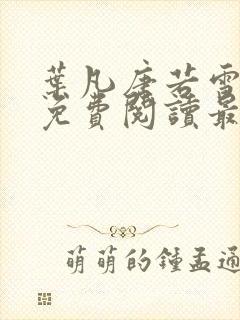 葉凡唐若雪
免費閱讀最
萌萌的鍾孟通